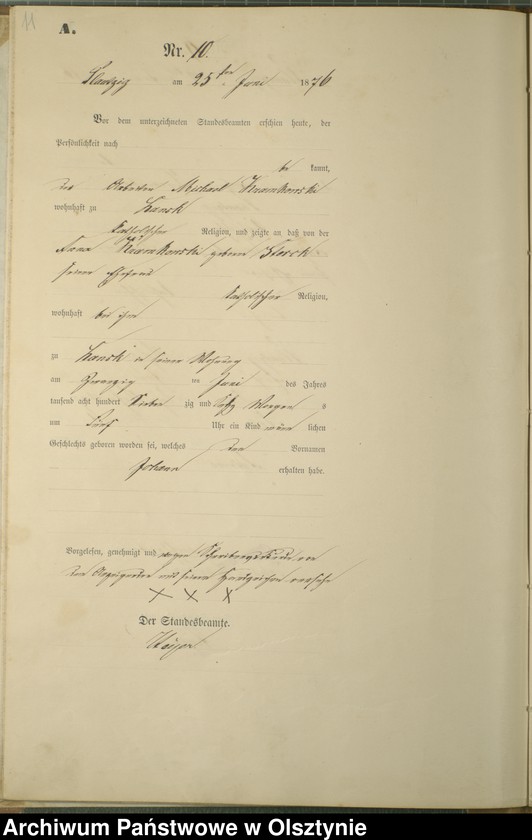 11
A.
Nr. 10.
am 25ten Juni 1876
Vor dem unterzeichneten Standesbeamten erschien heute, der
Persönlichkeit nach
be kannt,
der Arbeiter Michael
wohnhaft zu Lansk
katholischer Religion, und zeigte an daß von der
Anna geborene
seiner Ehefrau
katholischer Religion,
wohnhaft bei ihm
zu Lansk in seiner Wohnung
am zwanzig ten Juni des Jahres
tausend acht hundert sieben zig und sechs Morgen s
um fünf Uhr ein Kind männ lichen
Geschlechts geboren worden sei, welches den Vornamen
Johann erhalten habe.
Vorgelesen, genehmigt und wegen
von dem mit seinem Handzeichen versehen
X X X
Der Standesbeamte.
Archiwum Państwowe w Olsztynie